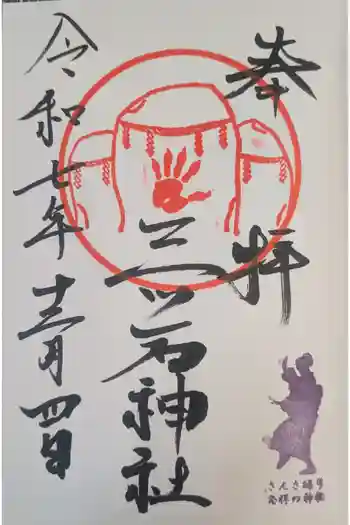 奉拝
三ツ石神社
令和七年
十二月四日
さんさ踊り
発祥の神社